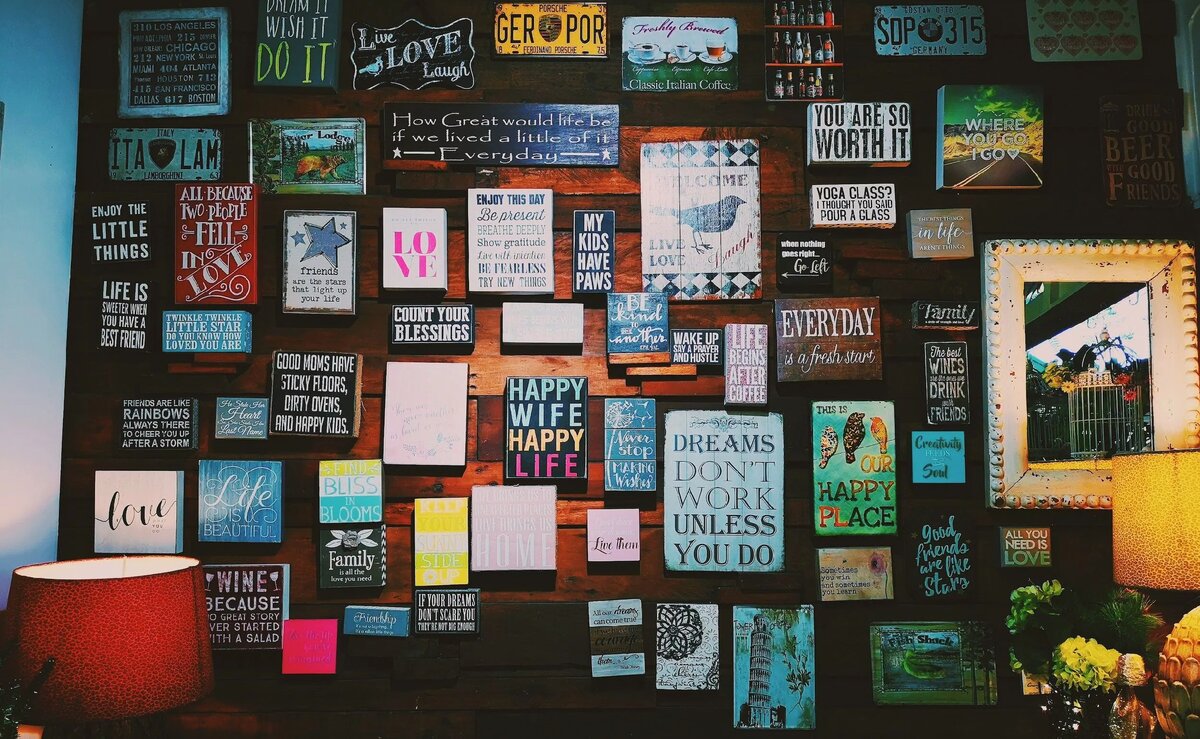 310 LOS ANGELES
CHICAGO
212 NEW YORK
MIAMI 404 ATLANTA
HOUSTON 713
415 SAN FRANCISCO
DALLAS 617 BOSTON
DREAM IT
WISH IT
DO IT
Live
LOVE
Laugh
GER POR
FERDINAND PORSCHE
Freshly Brewed
Classic Italian Coffee
SDP 315
GERMANY
ITALY
ITA LAM
LAMBORGHINI 63
Lodge
How Great would life be
if we lived a little of it
Everyday
YOU ARE SO
WORTH IT
WHERE
YOU GO
I GO
DRINK
GOOD
BEER
WITH GOOD
FRIENDS
ENJOY THE
LITTLE
THINGS
ALL BECAUSE
TWO PEOPLE
FELL
IN
LOVE
friends
are the stars
that light up
your life
LO
VE
ENJOY THIS DAY
Be present
BREATHE DEEPLY
Show gratitude
Live with intention
BE FEARLESS
TRY NEW THINGS
MY
KIDS
HAVE
PAWS
WELCOME
LIVE
LOVE
Laugh
YOGA CLASS?
I THOUGHT YOU SAID
POUR A GLASS
when nothing
goes right...
Go Left
THE BEST THINGS
in life
AREN'T THINGS
LIFE IS
SWEETER WHEN
YOU HAVE A
BEST FRIEND
TWINKLE TWINKLE
LITTLE STAR
DO YOU KNOW HOW
LOVED YOU ARE
COUNT YOUR
BLESSINGS
BE
kind
to one
another
WAKE UP
SAY A PRAYER
AND HUSTLE
LIFE
BEGINS
AFTER
COFFEE
EVERYDAY
is a fresh start
Family
The best
WINES
are the ones we
DRINK
with
FRIENDS
GOOD MOMS HAVE
STICKY FLOORS,
DIRTY OVENS,
AND HAPPY KIDS.
FRIENDS ARE LIKE
RAINBOWS
ALWAYS THERE
TO CHEER YOU UP
AFTER A STORM
He Stole Her
Heart
So She Stole
His Last Name
HAPPY
WIFE
HAPPY
LIFE
Never
stop
MAKING
Wishes
DREAMS
DON'T
WORK
UNLESS
YOU DO
THIS IS
OUR
HAPPY
PLACE
Creativity
FEEDS
THE
Soul
love
Life
IS
BEAUTIFUL
SEND
BLISS
IN
BLOOMS
Family
is all the
love you need
KEEP
YOUR
SUNNY
SIDE
UP
HOME
Live them
Sometimes
you win
and sometimes
you learn
Good
friends
are like
Stars
ALL YOU
NEED IS
LOVE
WINE
BECAUSE
NO GREAT STORY
EVER STARTED
WITH A SALAD
Friendship
IF YOUR DREAMS
DON'T SCARE YOU
THEY'RE NOT BIG ENOUGH
All our dreams
can come true
courage
them
Shack